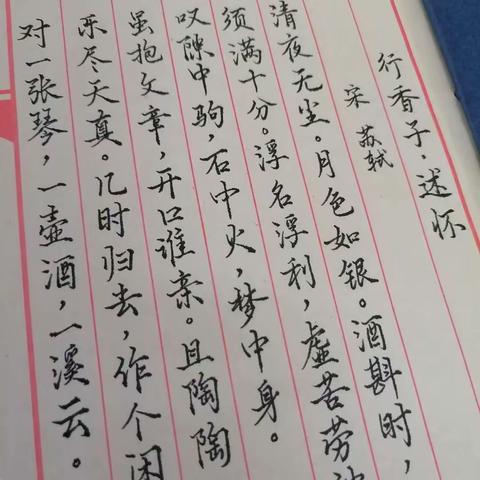 行香子·述怀
宋 苏轼
清夜无尘。月色如银。酒斟时，
须满十分。浮名浮利，虚苦劳
叹隙中驹，石中火，梦中身。
虽抱文章，开口谁亲。且陶陶
乐尽天真。几时归去，作个闲
对一张琴，一壶酒，一溪云。